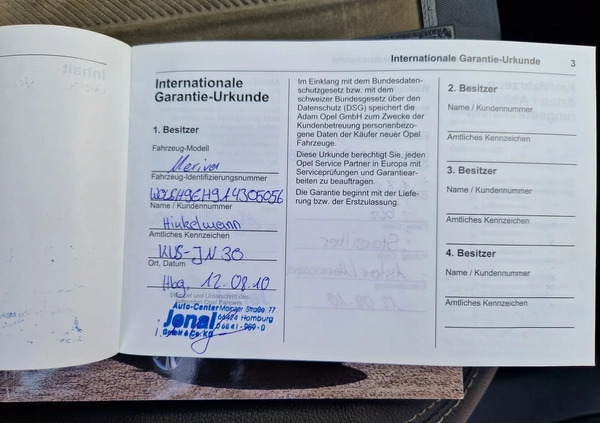 Internationale Garantie-Urkunde 3
Internationale
Garantie-Urkunde
1. Besitzer
Fahrzeug-Modell
Meriva
Fahrzeug-Identifizierungsnummer
W0LSH9EH9A4305056
Name / Kundennummer
Hinkelmann
Amtliches Kennzeichen
KUS-JN 30
Ort, Datum
Hbg, 12.08.10
Stempel und Unterschrift des
Opel Partners
Auto-Center Mainzer Straße 77
Jenal 66424 Homburg
GmbH & Co. KG 06841-969-0
Im Einklang mit dem Bundesdaten-
schutzgesetz bzw. mit dem
schweizer Bundesgesetz über den
Datenschutz (DSG) speichert die
Adam Opel GmbH zum Zwecke der
Kundenbetreuung personenbezo-
gene Daten der Käufer neuer Opel
Fahrzeuge.
Diese Urkunde berechtigt Sie, jeden
Opel Service Partner in Europa mit
Serviceprüfungen und Garantiear-
beiten zu beauftragen.
Die Garantie beginnt mit der Liefe-
rung bzw. der Erstzulassung.
2. Besitzer
Name / Kundennummer
Amtliches Kennzeichen
3. Besitzer
Name / Kundennummer
Amtliches Kennzeichen
4. Besitzer
Name / Kundennummer
Amtliches Kennzeichen